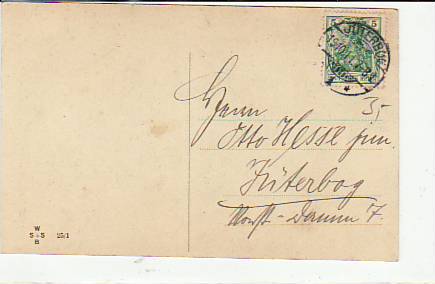 5
JÜTERBOG
Herrn
35
Otto Hesse jun.
Jüterbog
Damm 7.
W
S+S 25/1
B